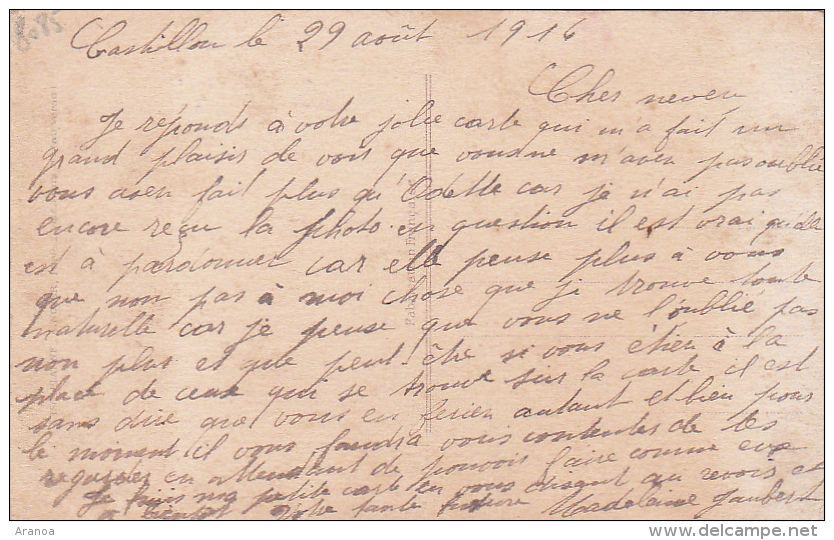 8085
Castillon le 29 août 1916
Cher neveu
Je réponds à votre jolie carte qui m'a fait un
grand plaisir de vois que vous ne m'aven pas oublié
vous aven fait plus qu'Odette car je n'ai pas
encore reçu la photo en question il est vrai qu'elle
est à pardonner car elle pense plus à vous
que non pas à moi chose que je trouve toute
naturelle car je pense que vous ne l'oublié pas
non plus et que peut-être si vous éties à la
place de ceux qui se trouve sur la carte il est
sans dire que vous en ferien autant et bien pour
le moment il vous faudra vous contenter de les
regarder en attendant de pouvois faire comme eux
Je finis ma petite carte en vous disant au revoir et
à bientôt Votre tante future Madeleine Jaubert
Fabrication Française
Aranoa
delcampe.net